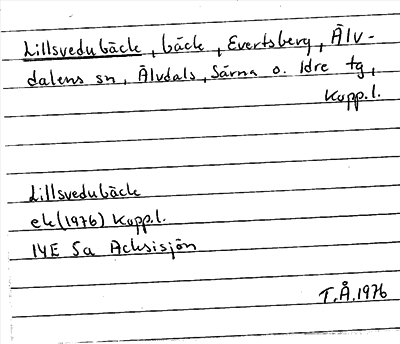 Lillsvedubäck, bäck, Evertsberg, Älv-
dalens sn, Älvdals, Särna o. Idre tg,
Kopp.l.
Lillsvedubäck
ek (1976) Kopp.l.
14E 5a Acksisjön
T.Å. 1976